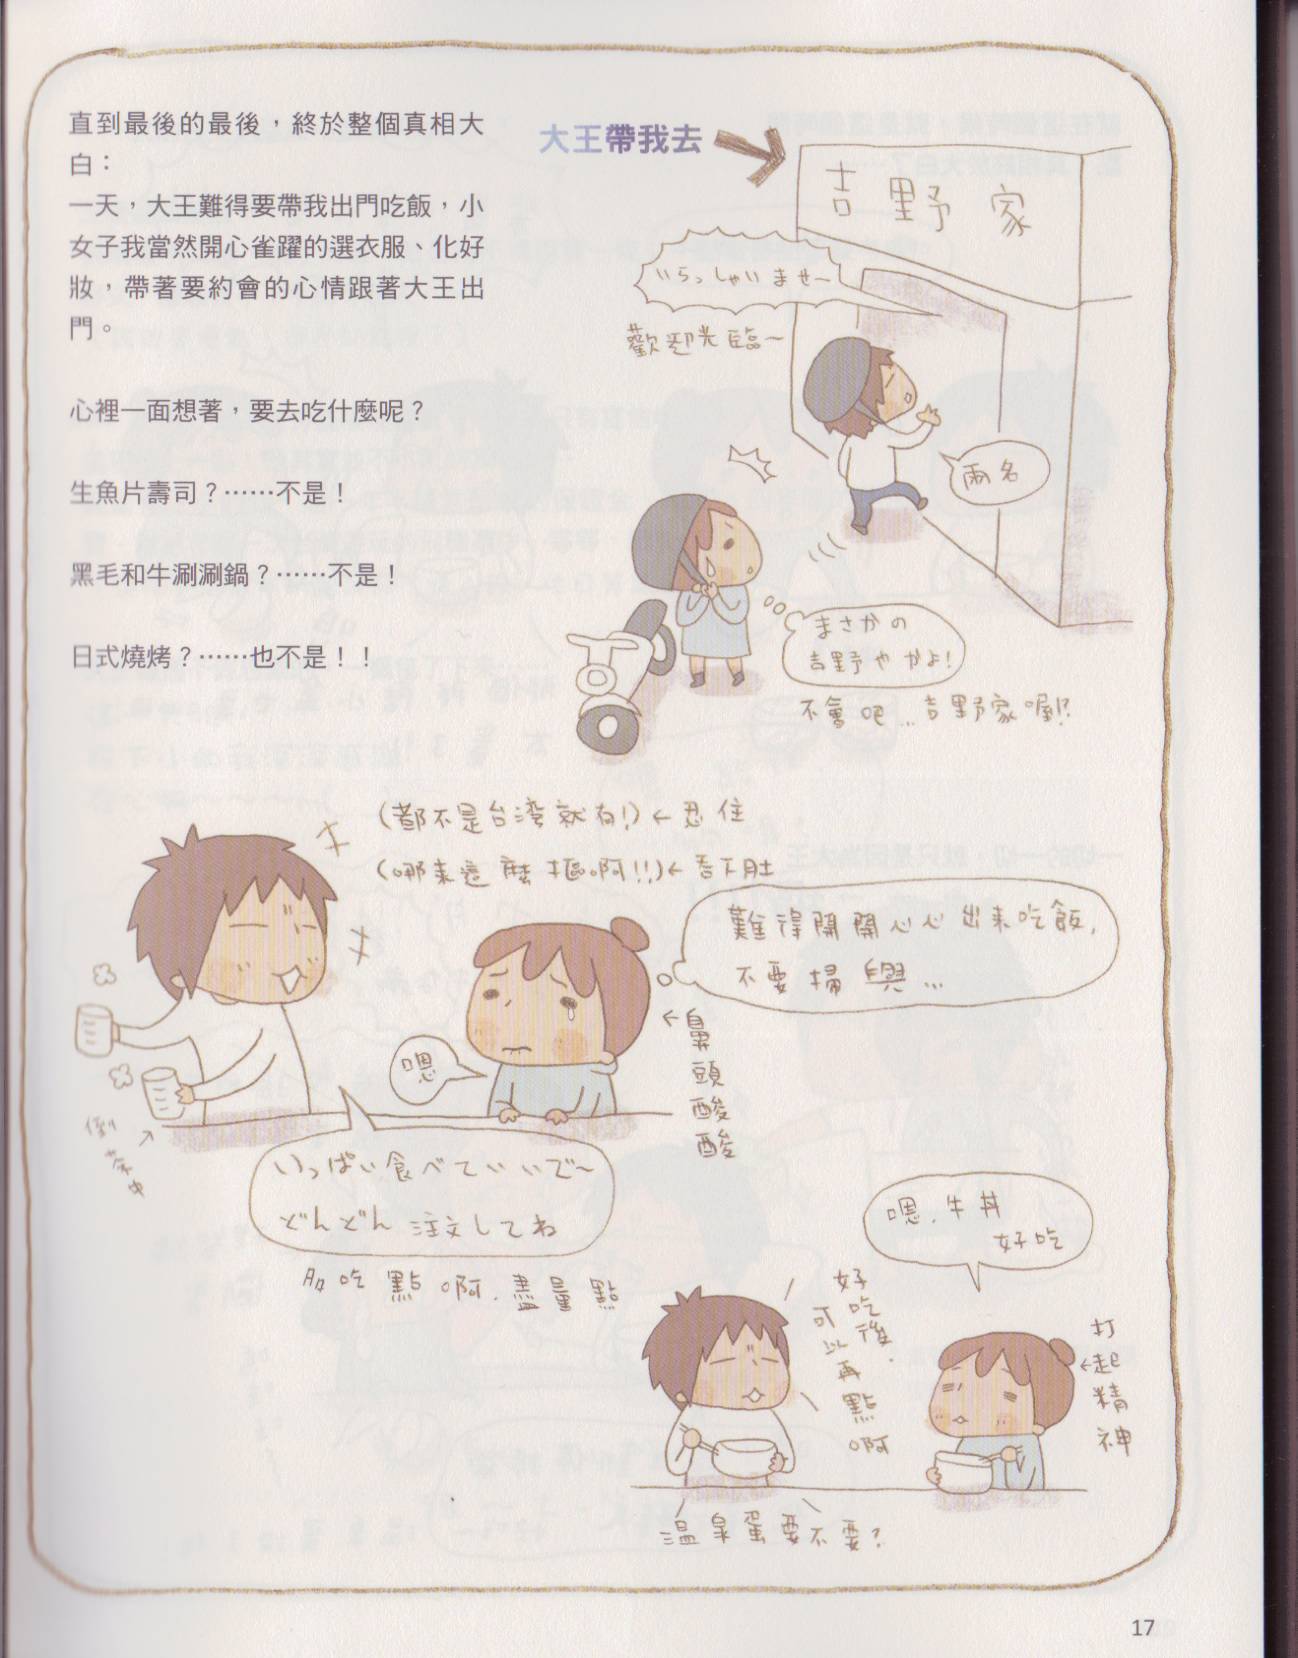 直到最後的最後，終於整個真相大
白：
一天，大王難得要帶我出門吃飯，小
女子我當然開心雀躍的選衣服、化好
妝，帶著要約會的心情跟著大王出
門。
心裡一面想著，要去吃什麼呢？
生魚片壽司？……不是！
黑毛和牛涮涮鍋？……不是！
日式燒烤？……也不是！！
大王帶我去
吉野家
いらっしゃいませ～
歡迎光臨～
兩名
まさかの
吉野やかよ！
不會吧…吉野家喔!?
(都不是台湾就有!)←忍住
(哪來這麼摳啊!!)←吞下肚
難得開開心心出來吃飯，
不要掃興…
←鼻頭酸酸
嗯
倒茶中
いっぱい食べていいで～
どんどん注文してね
多吃點啊，盡量點
嗯，牛丼
好吃
好吃後，
可以再點啊
←打起精神
溫泉蛋要不要？
17